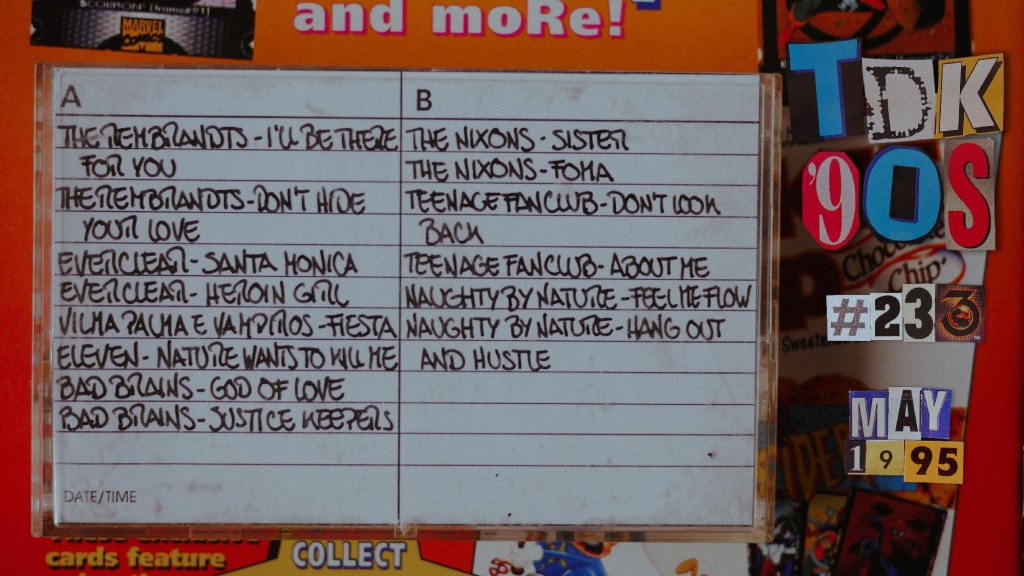 SCORPION
MARVEL
COMICS
and moRe!
A
THE REMBRANDTS - I'LL BE THERE
FOR YOU
THE REMBRANDTS - DON'T HIDE
YOUR LOVE
EVERCLEAR - SANTA MONICA
EVERCLEAR - HEROIN GIRL
VILMA PALMA E VAMPIROS - FIESTA
ELEVEN - NATURE WANTS TO KILL ME
BAD BRAINS - GOD OF LOVE
BAD BRAINS - JUSTICE KEEPERS
DATE/TIME
B
THE NIXONS - SISTER
THE NIXONS - FOMA
TEENAGE FANCLUB - DON'T LOOK
BACK
TEENAGE FANCLUB - ABOUT ME
NAUGHTY BY NATURE - FEEL ME FLOW
NAUGHTY BY NATURE - HANG OUT
AND HUSTLE
TDK
'90S
Chip
#233
MAY
1995
cards feature
COLLECT